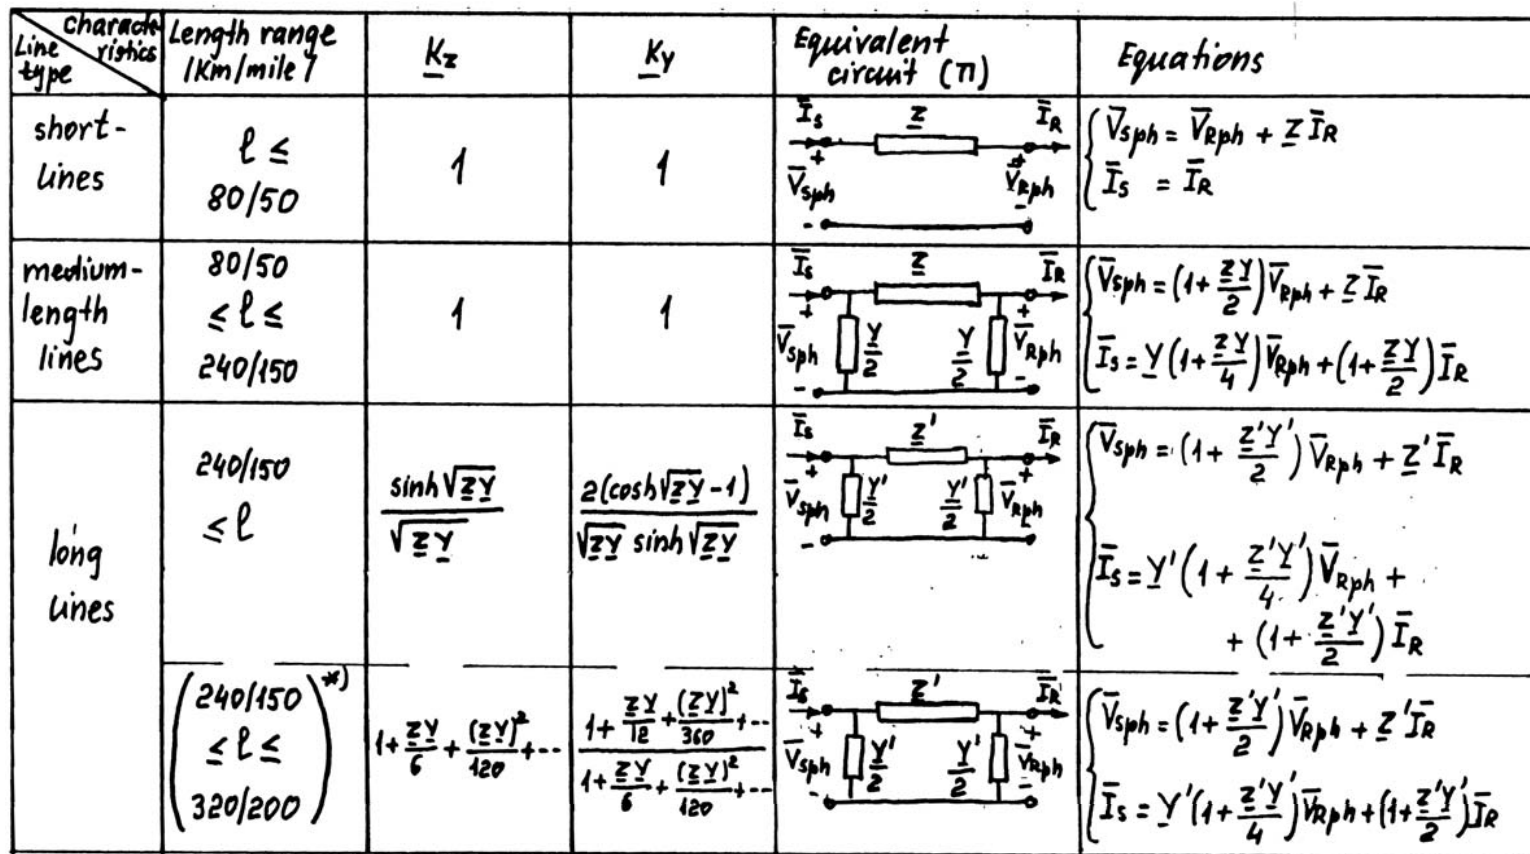 Characte-
ristics
Line
type
Length range
/Km/mile/
K̲z
K̲y
Equivalent
circuit (π)
Equations
short-
lines
ℓ ≤
80/50
1
1
I̅s Z̲ I̅R
+ +
V̅sph V̅Rph
- -
V̅sph = V̅Rph + Z̲ I̅R
I̅s = I̅R
medium-
length
lines
80/50
≤ ℓ ≤
240/150
1
1
I̅s Z̲ I̅R
+ +
V̅sph Y̲/2 Y̲/2 V̅Rph
- -
V̅sph = (1 + Z̲Y̲/2) V̅Rph + Z̲ I̅R
I̅s = Y̲(1 + Z̲Y̲/4) V̅Rph + (1 + Z̲Y̲/2) I̅R
long
lines
240/150
≤ ℓ
sinh√Z̲Y̲ / √Z̲Y̲
2(cosh√Z̲Y̲ - 1) / √Z̲Y̲ sinh√Z̲Y̲
I̅s Z̲' I̅R
+ +
V̅sph Y̲'/2 Y̲'/2 V̅Rph
- -
V̅sph = (1 + Z̲'Y̲'/2) V̅Rph + Z̲' I̅R
I̅s = Y̲'(1 + Z̲'Y̲'/4) V̅Rph +
+ (1 + Z̲'Y̲'/2) I̅R
(240/150 *)
≤ ℓ ≤
320/200)
1 + Z̲Y̲/6 + (Z̲Y̲)²/120 + --
1 + Z̲Y̲/12 + (Z̲Y̲)²/360 + --
1 + Z̲Y̲/6 + (Z̲Y̲)²/120 + --
I̅s Z̲' I̅R
+ +
V̅sph Y̲'/2 Y̲'/2 V̅Rph
- -
V̅sph = (1 + Z̲'Y̲'/2) V̅Rph + Z̲' I̅R
I̅s = Y̲'(1 + Z̲'Y̲'/4) V̅Rph + (1 + Z̲'Y̲'/2) I̅R